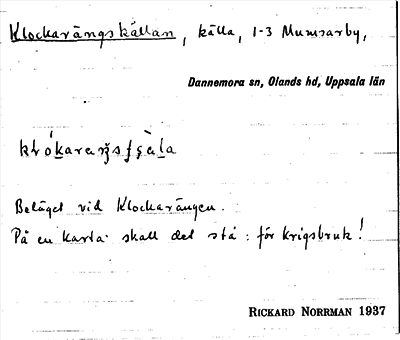 Klockarängskällan, källa, 1-3 Mumsarby,
Dannemora sn, Olands hd, Uppsala län
Beläget vid Klockarängen.
På en karta skall det stå: för krigsbruk!
RICKARD NORRMAN 1937